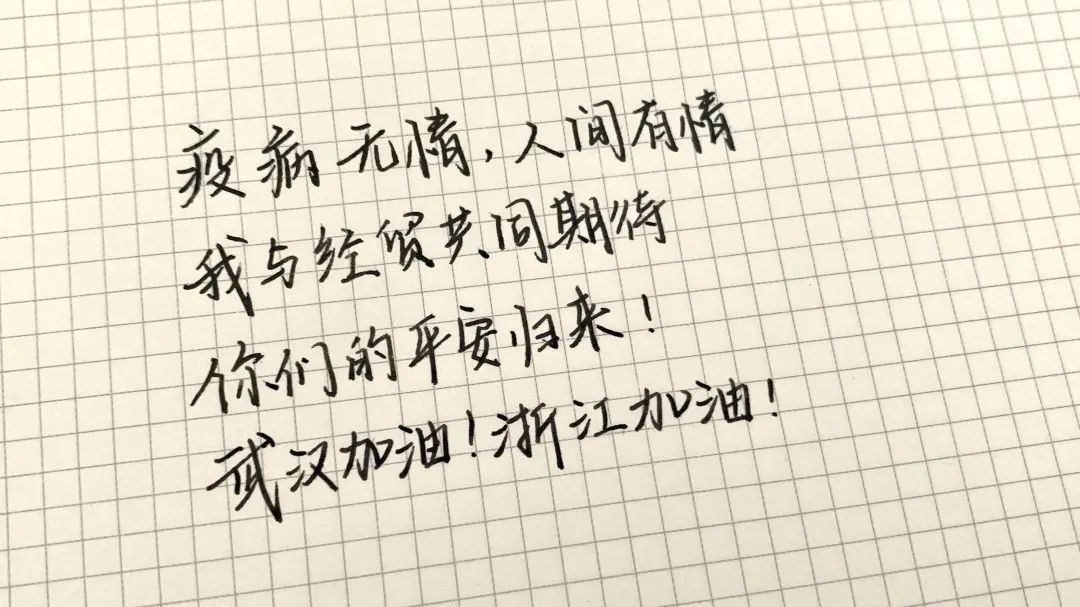 疫病无情,人间有情
我与经贸共同期待
你们的平安归来!
武汉加油!浙江加油!